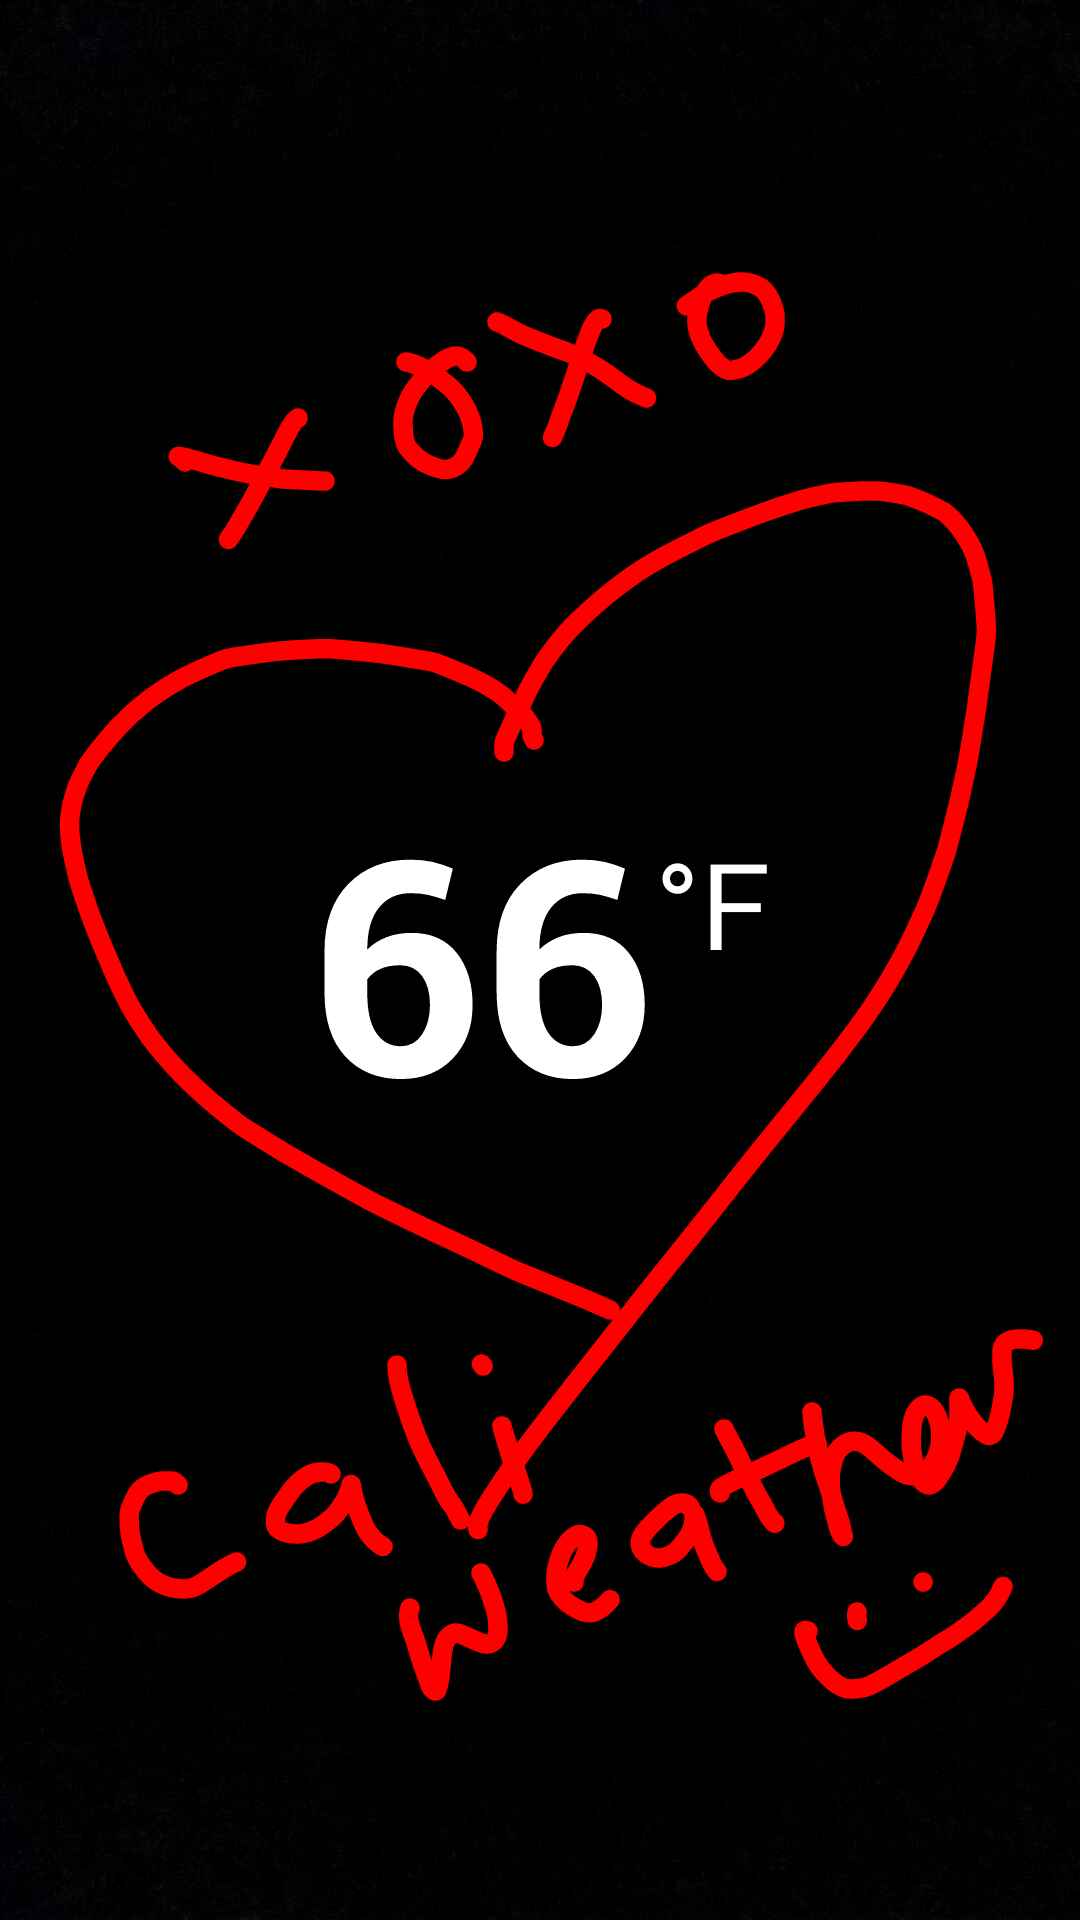 xoxo
66°F
Cali
weather